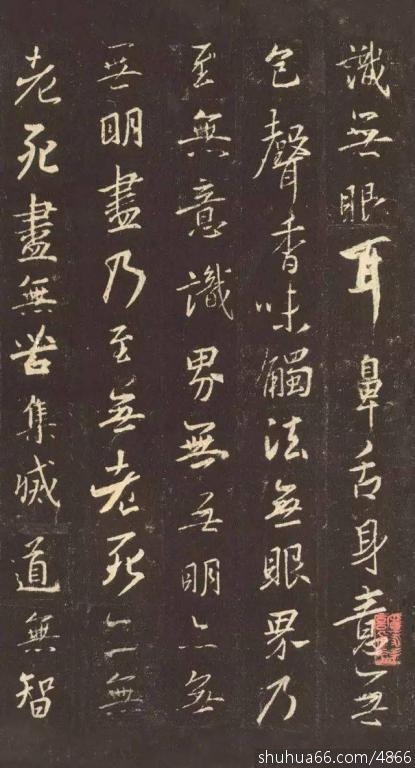 識無眼耳鼻舌身意无
色聲香味觸法無眼界乃
至無意識界無无明亦無
無明盡乃至無老死亦無
老死盡無苦集滅道無智
shuhua66.com/4866